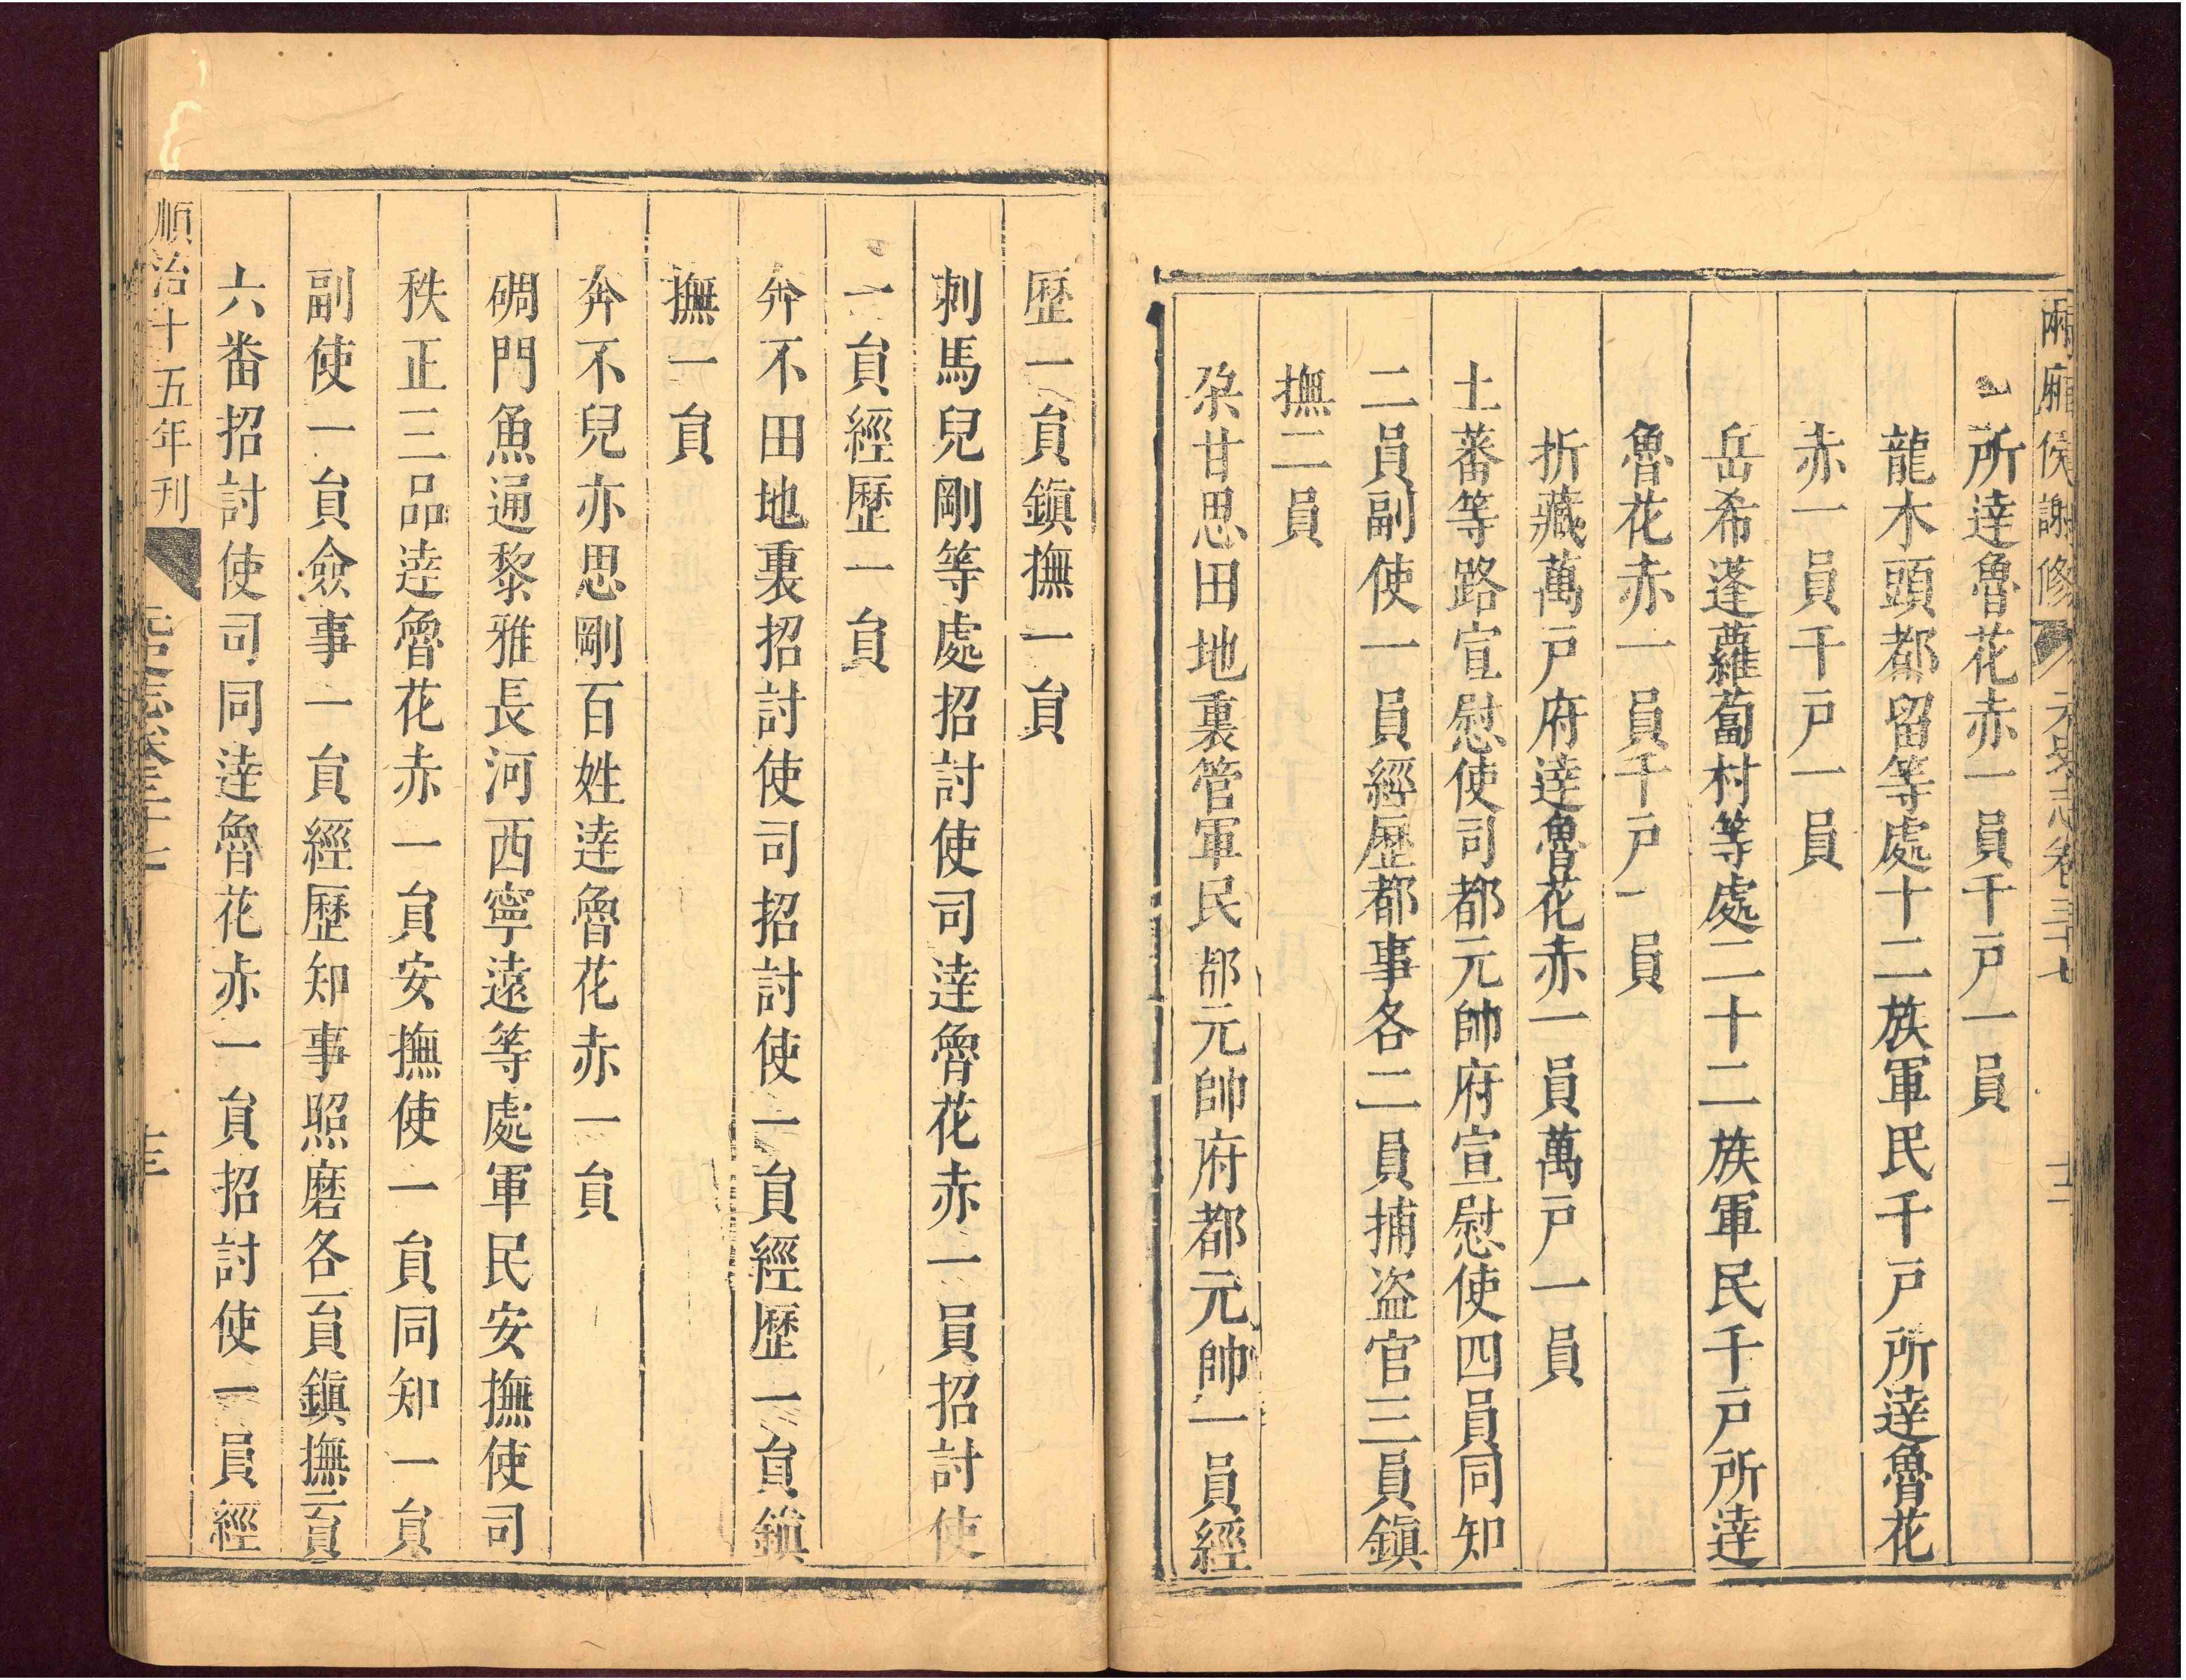 兩廂侯謝修 元史志卷三十七 十二
所達魯花赤一員千戸一員
龍木頭都留等處十二族軍民千戸所達魯花
赤一員千戸一員
岳希蓬蘿蔔村等處二十二族軍民千戸所達
魯花赤一員千戸一員
折藏萬戸府達魯花赤一員萬戸一員
土蕃等路宣慰使司都元帥府宣慰使四員同知
二員副使一員經歷都事各二員捕盗官三員鎭
撫二員
朶甘思田地裏管軍民都元帥府都元帥一員經
歷一員鎭撫一員
刺馬兒剛等處招討使司達魯花赤一員招討使
一員經歷一員
奔不田地裏招討使司招討使一員經歷一員鎭
撫一員
奔不兒亦思剛百姓達魯花赤一員
碉門魚通黎雅長河西寧遠等處軍民安撫使司
秩正三品達魯花赤一員安撫使一員同知一員
副使一員僉事一員經歷知事照磨各一員鎭撫二員
六番招討使司同達魯花赤一員招討使一員經
順治十五年刊 元史志卷三十七 十三